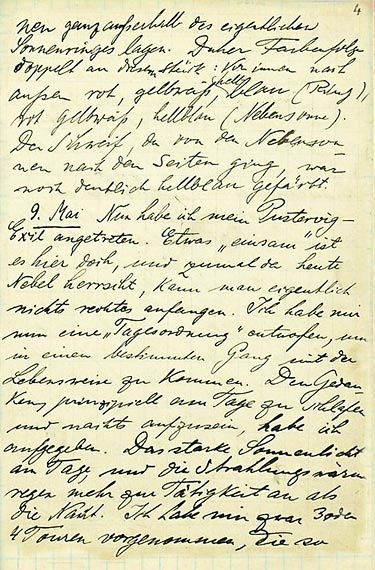 4
nen ganz außerhalb des eigentlichen
Sonnenringes lagen. Daher Farbenfolge
doppelt an diesem Stück: Von innen nach
außen rot, gelbweiß, hellblau (Ring),
rot gelbweiß, hellblau (Nebensonne).
Der Schweif, der von den Nebenson-
nen nach den Seiten ging, war
noch deutlich hellblau gefärbt.
9. Mai Nun habe ich mein Pustervig-
Exil angetreten. Etwas „einsam" ist
es hier doch, und zumal da heute
Nebel herrscht, kann man eigentlich
nichts rechtes anfangen. Ich habe mir
nun eine „Tagesordnung" entworfen, um
in einen bestimmten Gang mit der
Lebensweise zu kommen. Den Gedan-
ken, prinzipiell am Tage zu schlafen
und nachts aufzusein, habe ich
aufgegeben. Das starke Sonnenlicht
am Tage und die Strahlungswärme
regen mehr zur Tätigkeit an als
die Nacht. Ich habe mir zwar 3 oder
4 Touren vorgenommen, die so